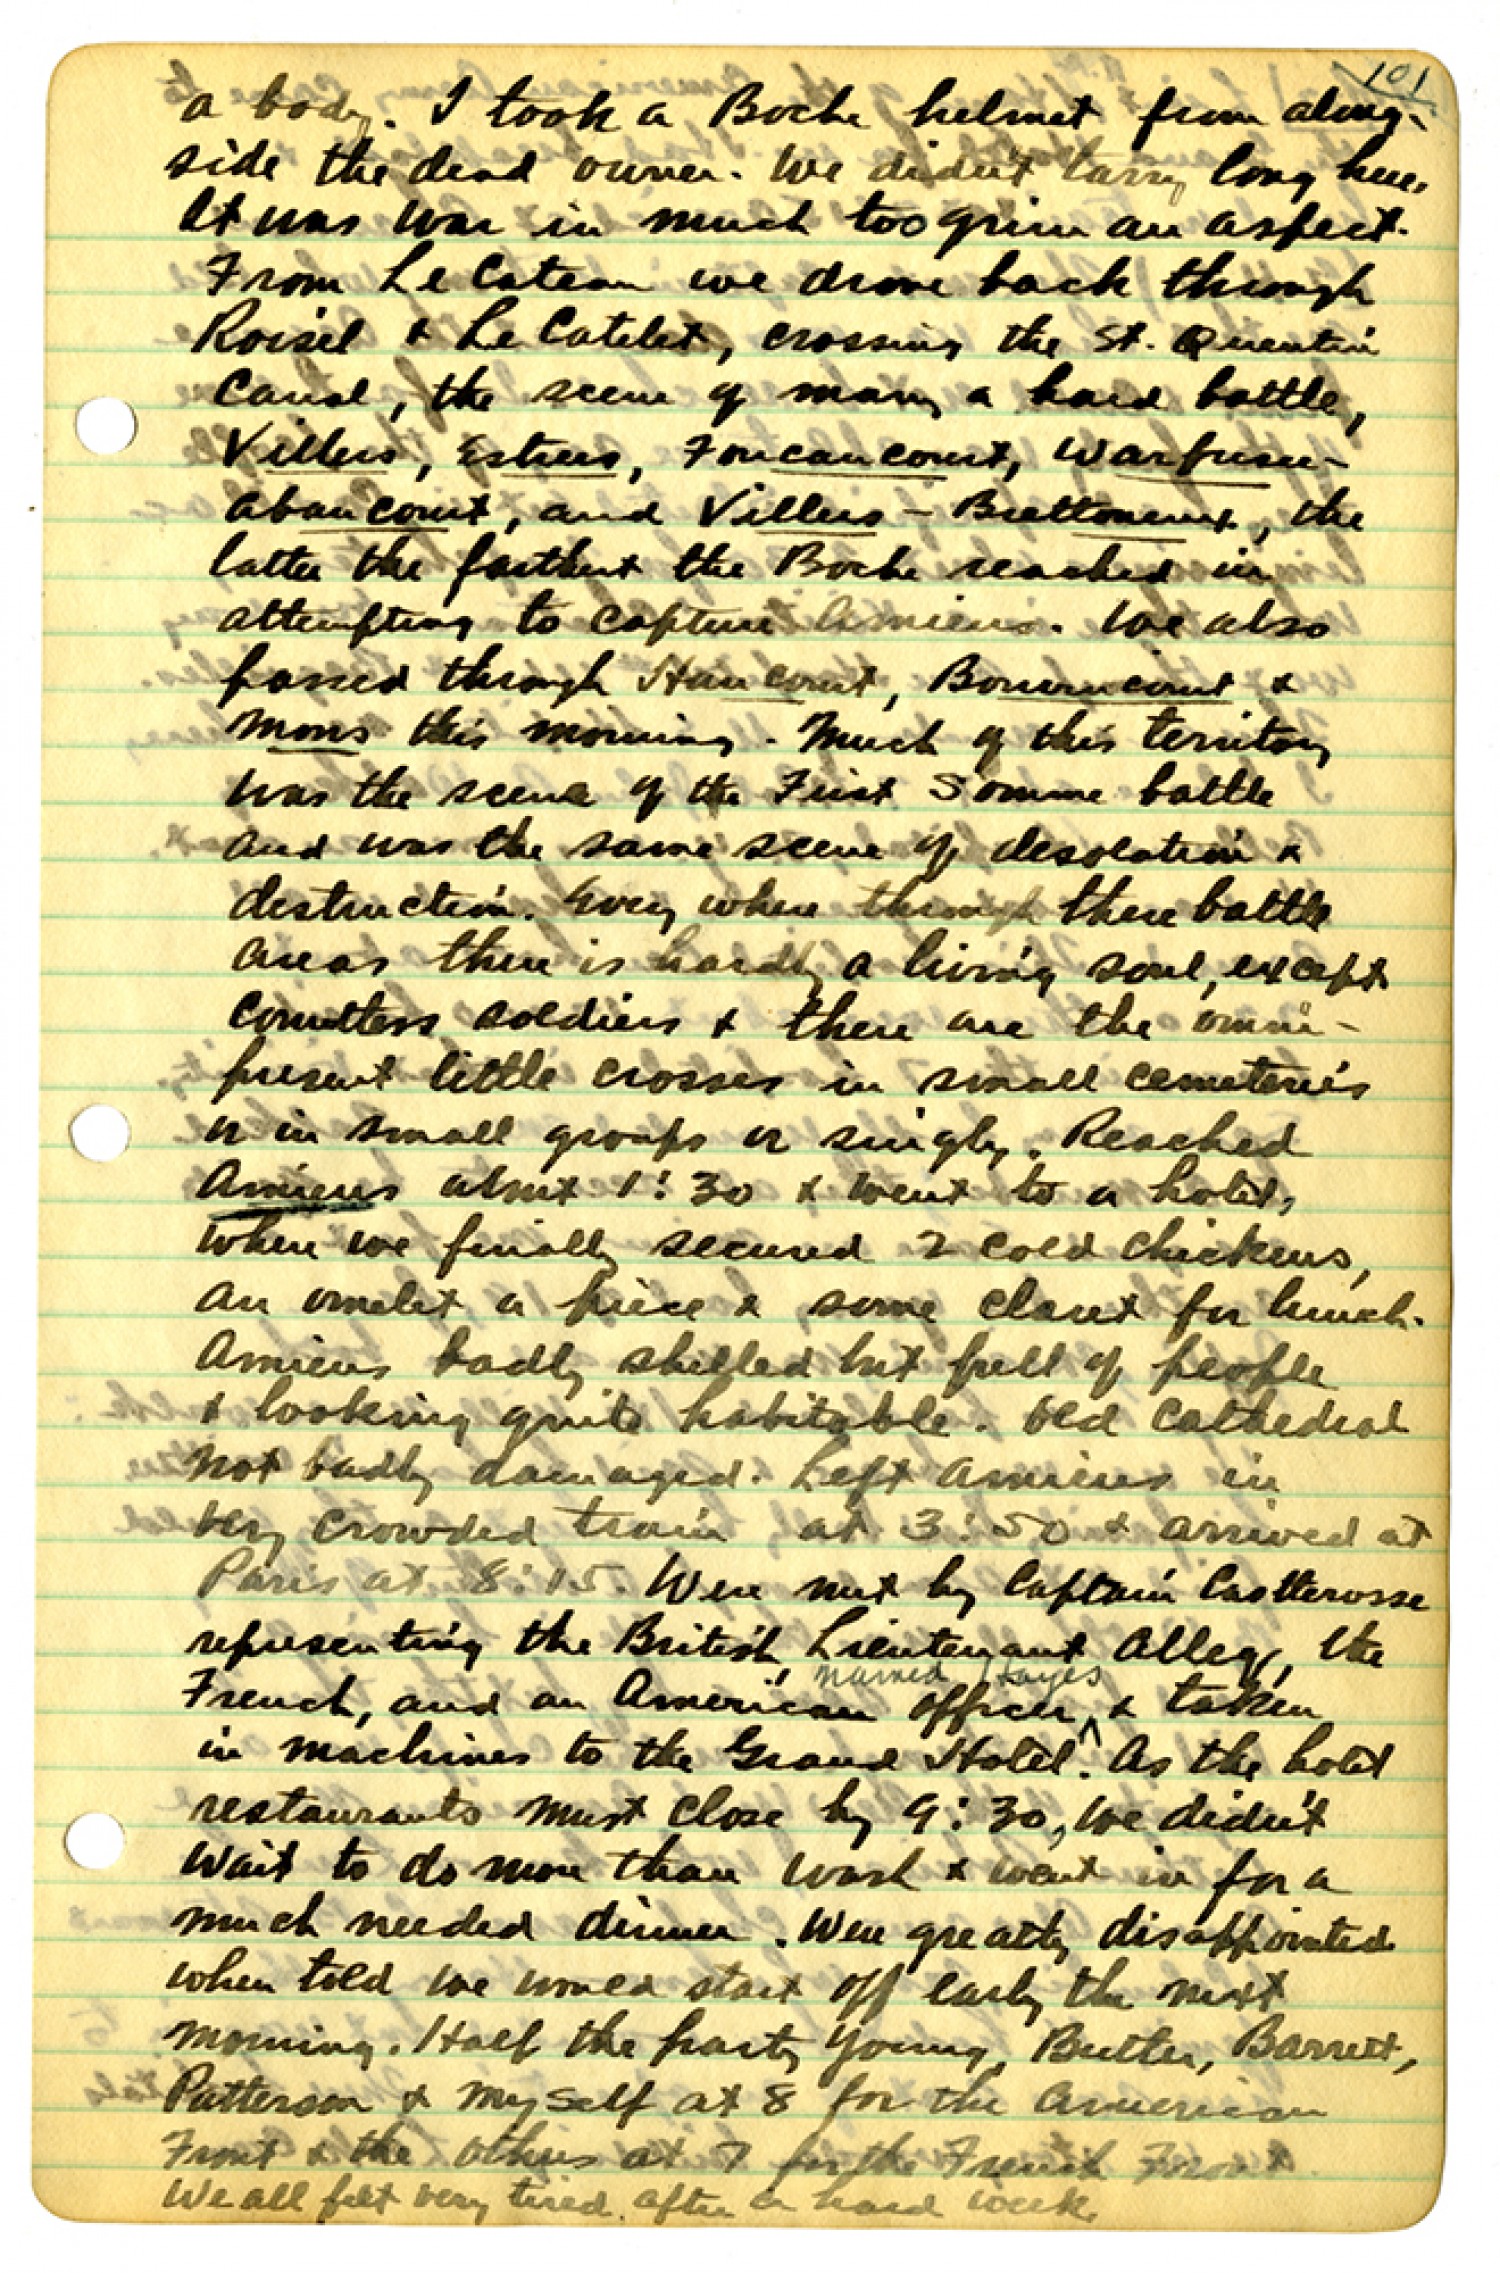 101
a body. I took a Boche helmet from along-
side the dead owner. We didn't tarry long here.
It was war in much too grim an aspect.
From Le Cateau we drove back through
Roisel & Le Catelet, crossing the St. Quentin
Canal, the scene of many a hard battle,
Villers, Estrees, Foucaucourt, Warfusee-
abancourt, and Villers-Brettoneux, the
latter the farthest the Boche reached in
attempting to capture Amiens. We also
passed through Hancourt, Bouvincourt &
Mons this morning. Much of this territory
was the scene of the First Somme battle
and was the same scene of desolation &
destruction. Every where through these battle
areas there is hardly a living soul, except
countless soldiers & there are the omni-
present little crosses in small cemeteries
or in small groups or singly. Reached
Amiens about 1:30 & went to a hotel,
where we finally secured 2 cold chickens,
an omelet a piece & some claret for lunch.
Amiens badly shelled but full of people
& looking quite habitable. Old Cathedral
not badly damaged. Left Amiens in
very crowded train at 3:50 & arrived at
Paris at 8:15. Were met by Captain Castlerosse
representing the British, Lieutenant Allegi, the
named Hayes
French, and an American officer ^ & taken
in machines to the Grand Hotel. As the hotel
restaurants must close by 9:30, we didn't
wait to do more than wash & went in for a
much needed dinner. Were greatly disappointed
when told we would start off early the next
morning. Half the party Young, Butler, Barrett,
Patterson & myself at 8 for the American
Front & the others at 7 for the French Front.
We all felt very tired after a hard week.